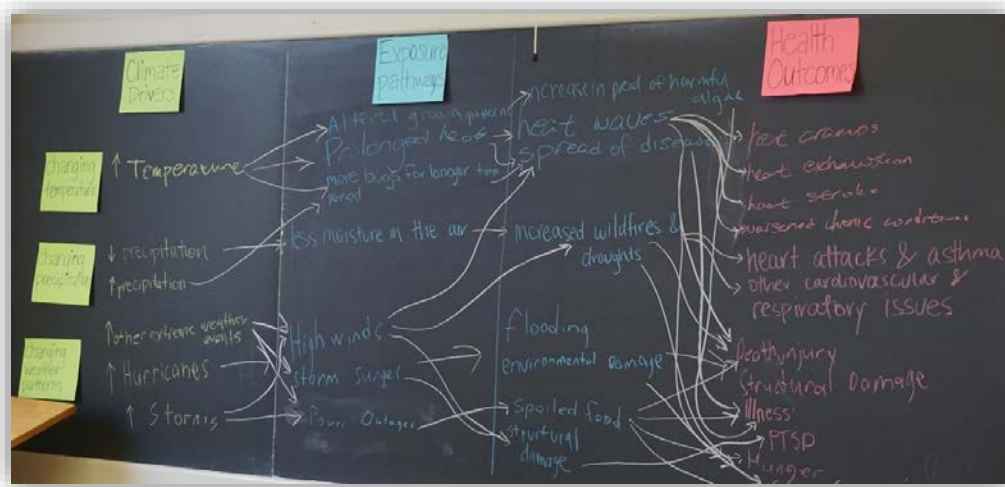 Climate
Drivers
Exposure
pathways
Health
Outcomes
changing
temperature
changing
precipitation
changing
weather
patterns
↑ Temperature
↓ precipitation
↑ precipitation
↑ other extreme weather
events
↑ Hurricanes
↑ Storms
Altered growing pattern
Prolonged heat
more bugs for longer time
period
less moisture in the air
High winds
storm surges
Power Outages
increase in pod of harmful
algae
heat waves
spread of disease
increased wildfires &
droughts
flooding
environmental Damage
Spoiled food
structural
damage
heat cramps
heat exhaustion
heat stroke
worsened chronic conditions
heart attacks & asthma
other cardiovascular &
respiratory issues
Death, injury
Structural Damage
Illness
PTSD
Hunger